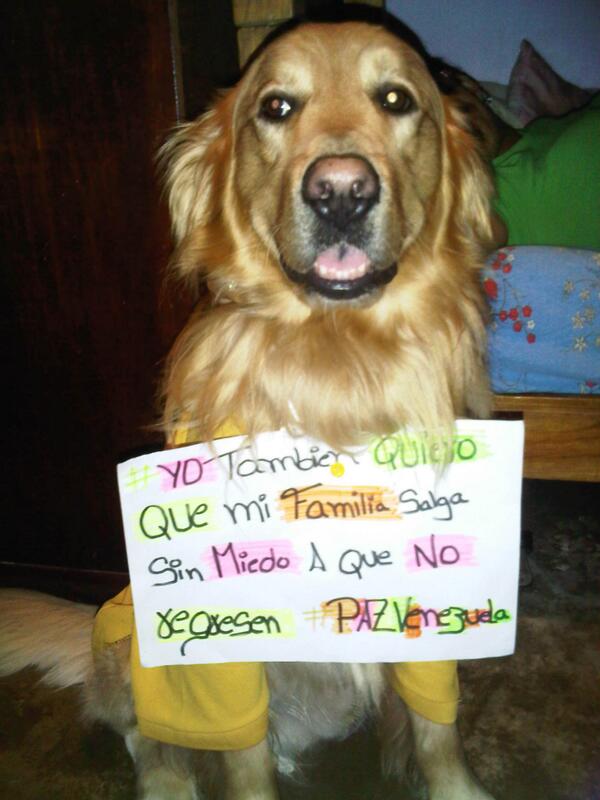 #YO También QUiero
QUe mi Familia Salga
Sin Miedo A Que NO
regresen #PAZVenezuela